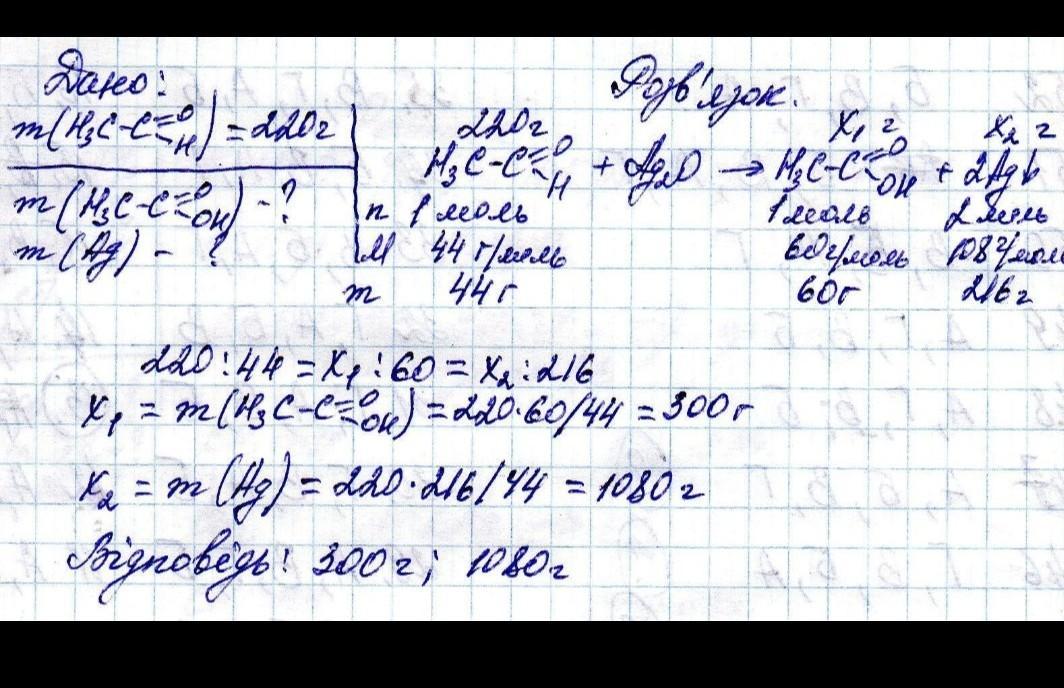 Дано:
m(H₃C-C=O-H) = 220г
m(H₃C-C=O-OH) - ?
m(Ag) - ?
Розв'язок.
220г x₁ г x₂ г
H₃C-C=O-H + Ag₂O → H₃C-C=O-OH + 2Ag↓
n 1 моль 1 моль 2 моль
M 44 г/моль 60г/моль 108г/моль
m 44 г 60г 216г
220:44 = x₁:60 = x₂:216
x₁ = m(H₃C-C=O-OH) = 220·60/44 = 300г
x₂ = m(Ag) = 220·216/44 = 1080г
Відповідь: 300г; 1080г